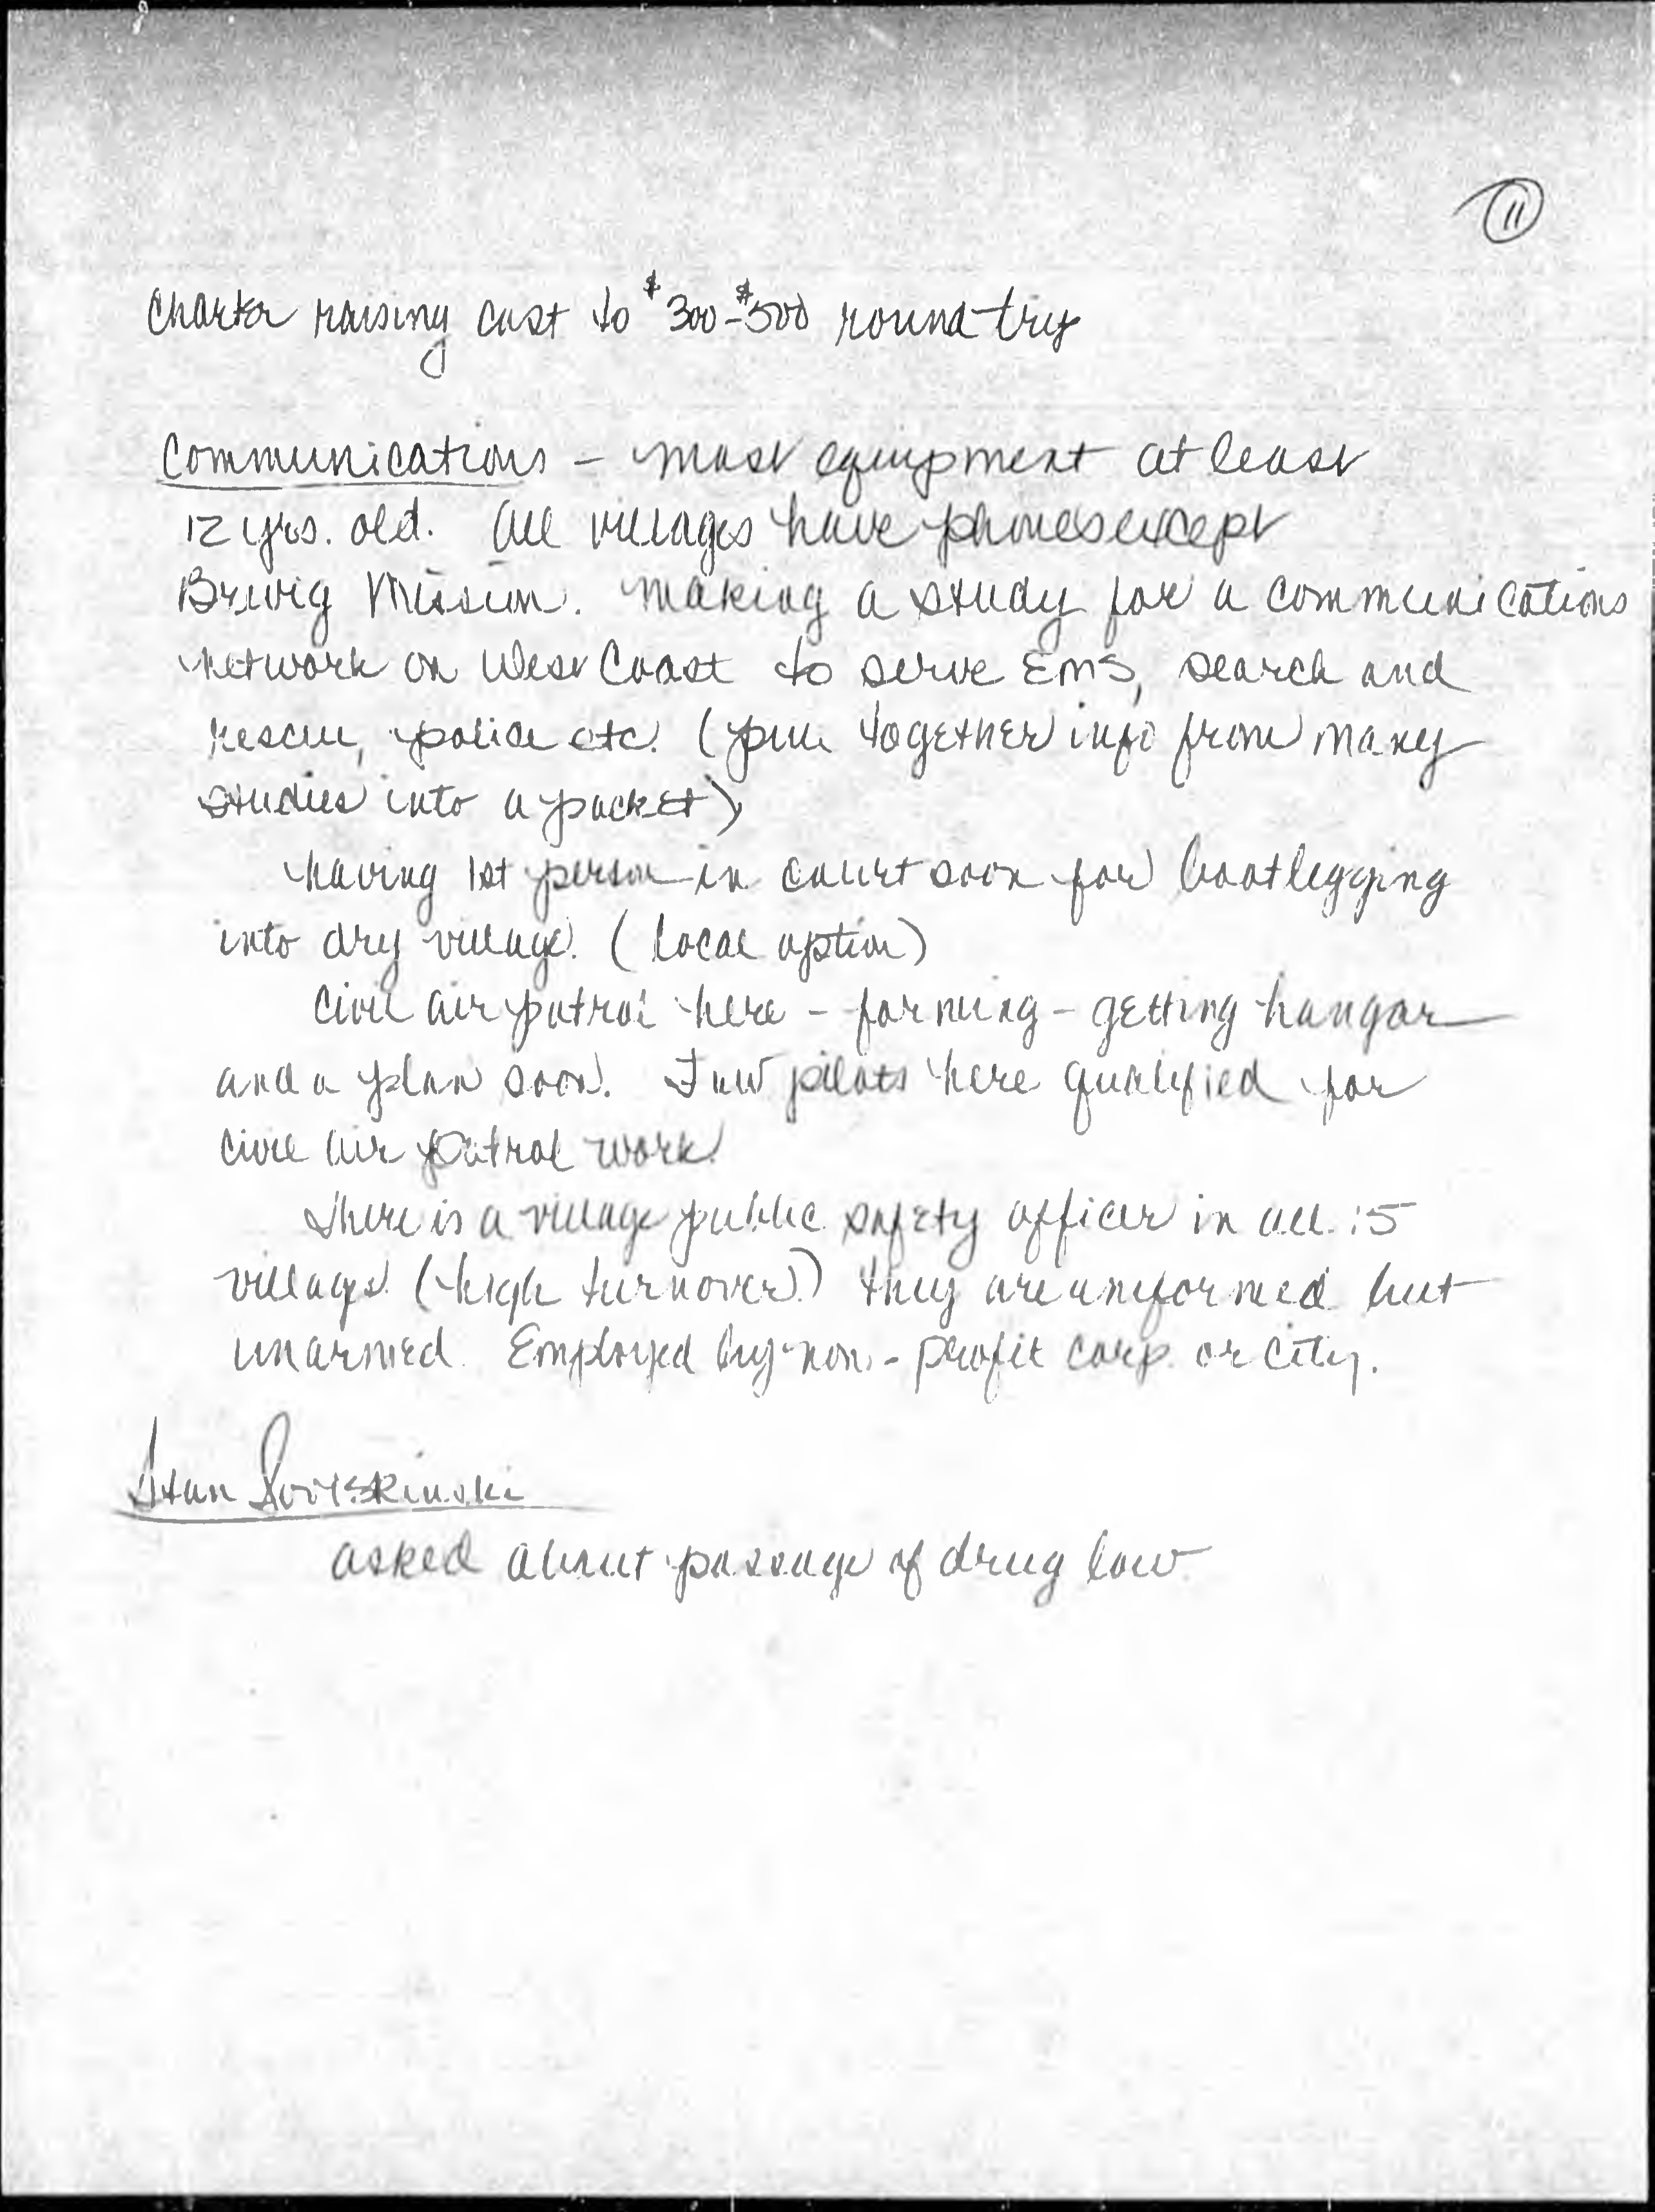 11
Charter raising cost to $300-$500 round-trip
Communications - most equipment at least
12 yrs. old. All villages have phones except
Brevig Mission. Making a study for a communications
network on West Coast to serve EMS, search and
rescue, police etc. (pull together info from many
studies into a packet)
having 1st person in court soon for bootlegging
into dry village. (local option)
Civil air patrol here - forming - getting hangar
and a plan soon. Few pilots here qualified for
civil air patrol work.
There is a village public safety officer in all 15
villages (high turnover) they are uniformed but
unarmed. Employed by non-profit corp. or city.
Stan
asked about passage of drug law